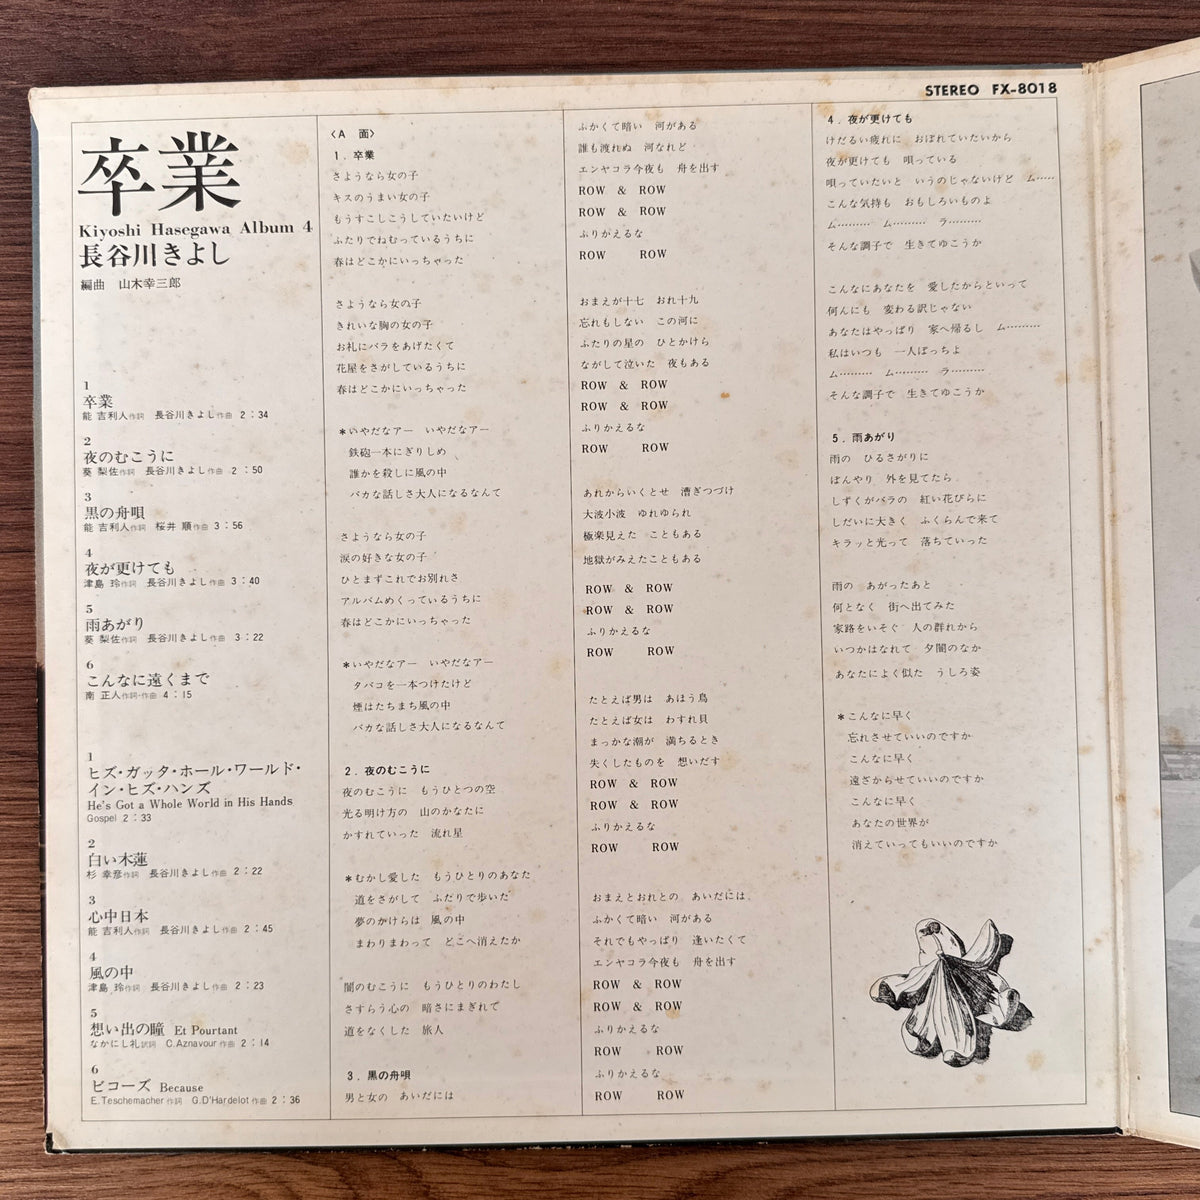 STEREO FX-8018
卒業
Kiyoshi Hasegawa Album 4
長谷川きよし
編曲 山木幸三郎
1
卒業
能 吉利人作詞 長谷川きよし作曲 2：34
2
夜のむこうに
葵 梨佐作詞 長谷川きよし作曲 2：50
3
黒の舟唄
能 吉利人作詞 桜井 順作曲 3：56
4
夜が更けても
津島 玲作詞 長谷川きよし作曲 3：40
5
雨あがり
葵 梨佐作詞 長谷川きよし作曲 3：22
6
こんなに遠くまで
南 正人作詞・作曲 4：15
1
ヒズ・ガッタ・ホール・ワールド・
イン・ヒズ・ハンズ
He's Got a Whole World in His Hands
Gospel 2：33
2
白い木蓮
杉 幸彦作詞 長谷川きよし作曲 2：22
3
心中日本
能 吉利人作詞 長谷川きよし作曲 2：45
4
風の中
津島 玲作詞 長谷川きよし作曲 2：23
5
想い出の瞳 Et Pourtant
なかにし礼訳詞 C.Aznavour作曲 2：14
6
ビコーズ Because
E.Teschemacher作詞 G.D'Hardelot作曲 2：36
〈A 面〉
1．卒業
さようなら女の子
キスのうまい女の子
もうすこしこうしていたいけど
ふたりでねむっているうちに
春はどこかにいっちゃった
さようなら女の子
きれいな胸の女の子
お礼にバラをあげたくて
花屋をさがしているうちに
春はどこかにいっちゃった
＊いやだなアー いやだなアー
鉄砲一本にぎりしめ
誰かを殺しに風の中
バカな話しさ大人になるなんて
さようなら女の子
涙の好きな女の子
ひとまずこれでお別れさ
アルバムめくっているうちに
春はどこかにいっちゃった
＊いやだなアー いやだなアー
タバコを一本つけたけど
煙はたちまち風の中
バカな話しさ大人になるなんて
2．夜のむこうに
夜のむこうに もうひとつの空
光る明け方の 山のかなたに
かすれていった 流れ星
＊むかし愛した もうひとりのあなた
道をさがして ふたりで歩いた
夢のかけらは 風の中
まわりまわって どこへ消えたか
闇のむこうに もうひとりのわたし
さすらう心の 暗さにまぎれて
道をなくした 旅人
3．黒の舟唄
男と女の あいだには
ふかくて暗い 河がある
誰も渡れぬ 河なれど
エンヤコラ今夜も 舟を出す
ROW & ROW
ROW & ROW
ふりかえるな
ROW ROW
おまえが十七 おれ十九
忘れもしない この河に
ふたりの星の ひとかけら
ながして泣いた 夜もある
ROW & ROW
ROW & ROW
ふりかえるな
ROW ROW
あれからいくとせ 漕ぎつづけ
大波小波 ゆれゆられ
極楽見えた こともある
地獄がみえたこともある
ROW & ROW
ROW & ROW
ふりかえるな
ROW ROW
たとえば男は あほう鳥
たとえば女は わすれ貝
まっかな潮が 満ちるとき
失くしたものを 想いだす
ROW & ROW
ROW & ROW
ふりかえるな
ROW ROW
おまえとおれとの あいだには
ふかくて暗い 河がある
それでもやっぱり 逢いたくて
エンヤコラ今夜も 舟を出す
ROW & ROW
ROW & ROW
ふりかえるな
ROW ROW
ふりかえるな
ROW ROW
4．夜が更けても
けだるい疲れに おぼれていたいから
夜が更けても 唄っている
唄っていたいと いうのじゃないけど ム……
こんな気持も おもしろいものよ
ム……… ム……… ラ………
そんな調子で 生きてゆこうか
こんなにあなたを 愛したからといって
何んにも 変わる訳じゃない
あなたはやっぱり 家へ帰るし ム………
私はいつも 一人ぼっちよ
ム……… ム……… ラ………
そんな調子で 生きてゆこうか
5．雨あがり
雨の ひるさがりに
ぼんやり 外を見てたら
しずくがバラの 紅い花びらに
しだいに大きく ふくらんで来て
キラッと光って 落ちていった
雨の あがったあと
何となく 街へ出てみた
家路をいそぐ 人の群れから
いつかはなれて 夕闇のなか
あなたによく似た うしろ姿
＊こんなに早く
忘れさせていいのですか
こんなに早く
遠ざからせていいのですか
こんなに早く
あなたの世界が
消えていってもいいのですか